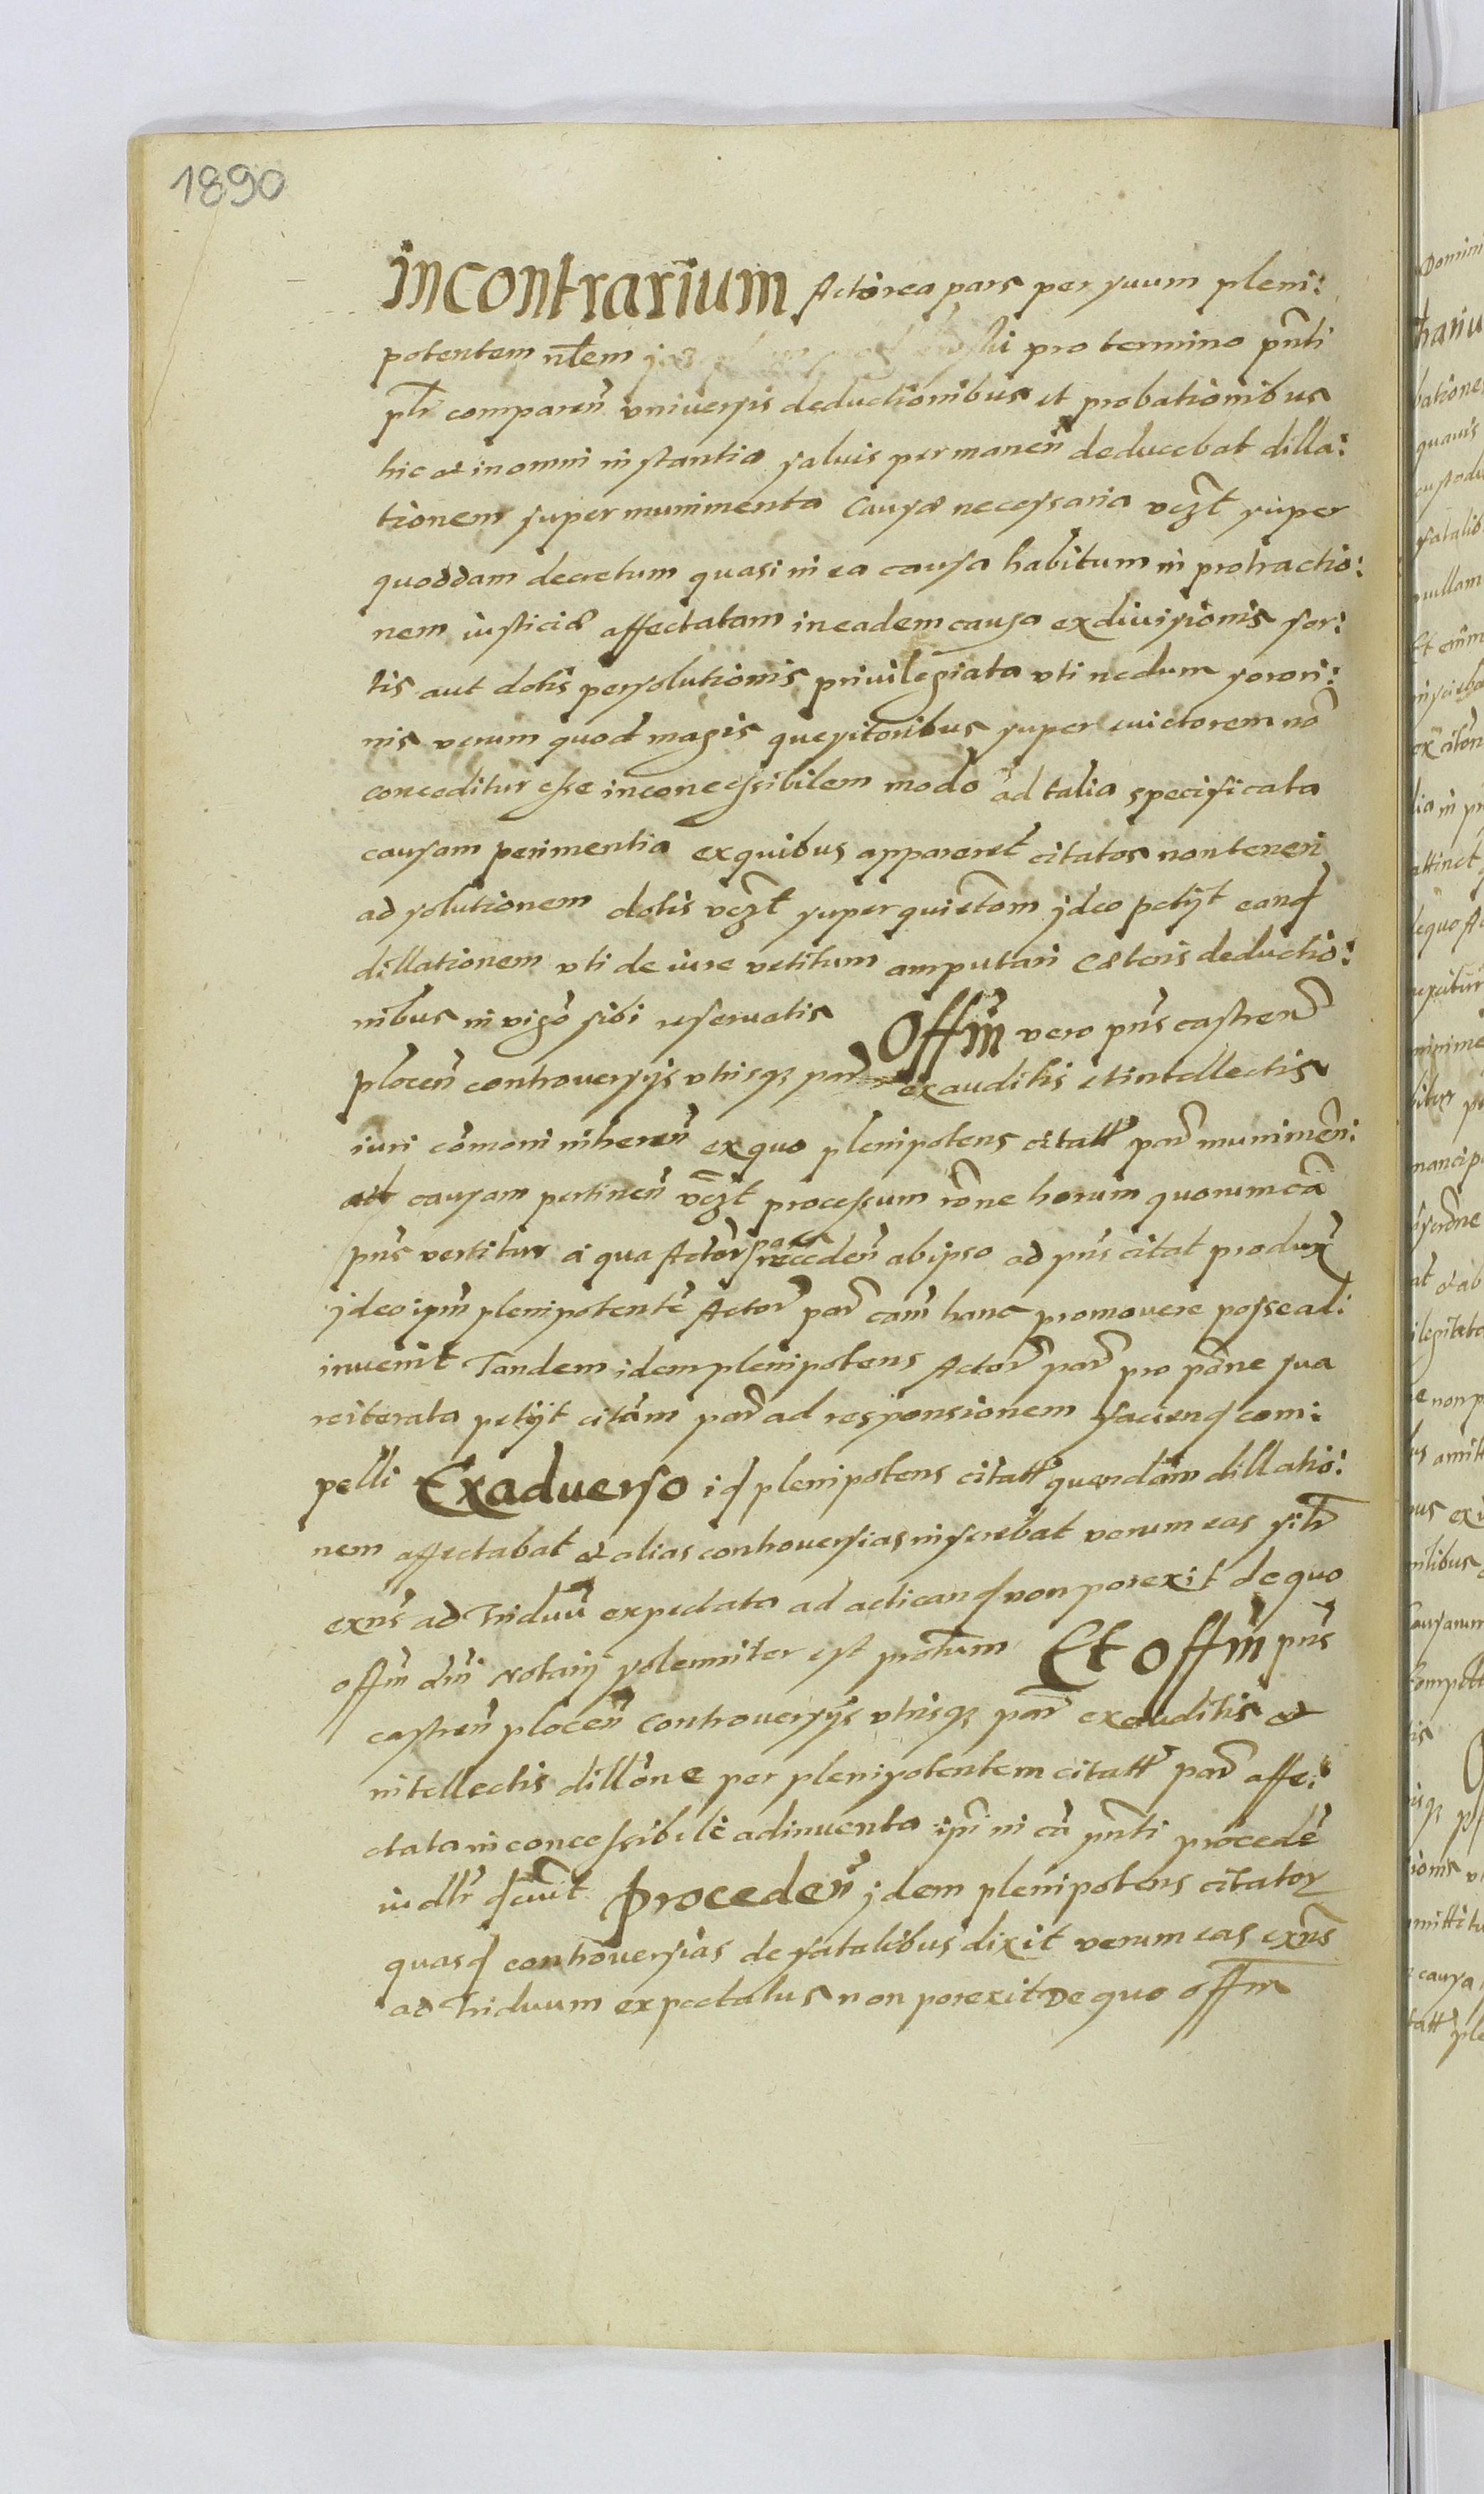 1890
Incontrarium Actorea pars per suum pleni:
potentem nlem pro termino pnti
plr comparen vniuersis deductionibus et probationibus
hic et in omni instantia saluis permanen deducebat dilla:
tionem super munimenta Causæ necessaria vczt super
quoddam decretum quasi in ea causa habitum in protractio:
nem iusticiæ affectatam in eadem causa ex diuisionis sor:
tis aut dotis persolutionis priuilegiata vti nedum sorori:
nis verum quod magis quesitoribus super euictorem nō
conceditur esse inconcessibilem modo ad talia specificata
causam perimentia ex quibus appareret citatos non teneri
ad solutionem dotis vczt super quietom jdeo petijt eand
dillationem vti de iure vetitum amputari Cæteris deductio:
nibus in vigō sibi reseruatis Offm vero pns castren
plocen controuersijs vtrisq par exauditis et intellectis
iuri comoni inheren ex quo plenipotens citatt par munimen:
ad causam pertinen vczt processum rōne horum quorum cā
pns vertitur a qua Actor pars receden ab ipso ad pns citat produx
jdeo ipm plenipotente Actor par cam hanc promouere posse ad:
inuenit Tandem idem plenipotens Actor par pro pōne sua
reiterata petijt citam par ad responsionem faciend com:
pelli Exaduerso id plenipotens citatt quendam dillatio:
nem affectabat et alias controuersias inferebat verum eas silr
exns ad Triduū expectata ad acticand non porexit de quo
offm dni Notarij solemniter est protum Et Offm pns
castren plocen controuersijs vtrisq par exauditis et
intellectis dillōne per plenipotentem citatt par affe:
ctata inconcessibile adinuenta ipi in cā pnti procede
iudlr dcuit Proceden jdem plenipotens citator
quasd controuersias de fatalibus dixit verum eas exns
ad Triduum expectatus non porexit De quo offm